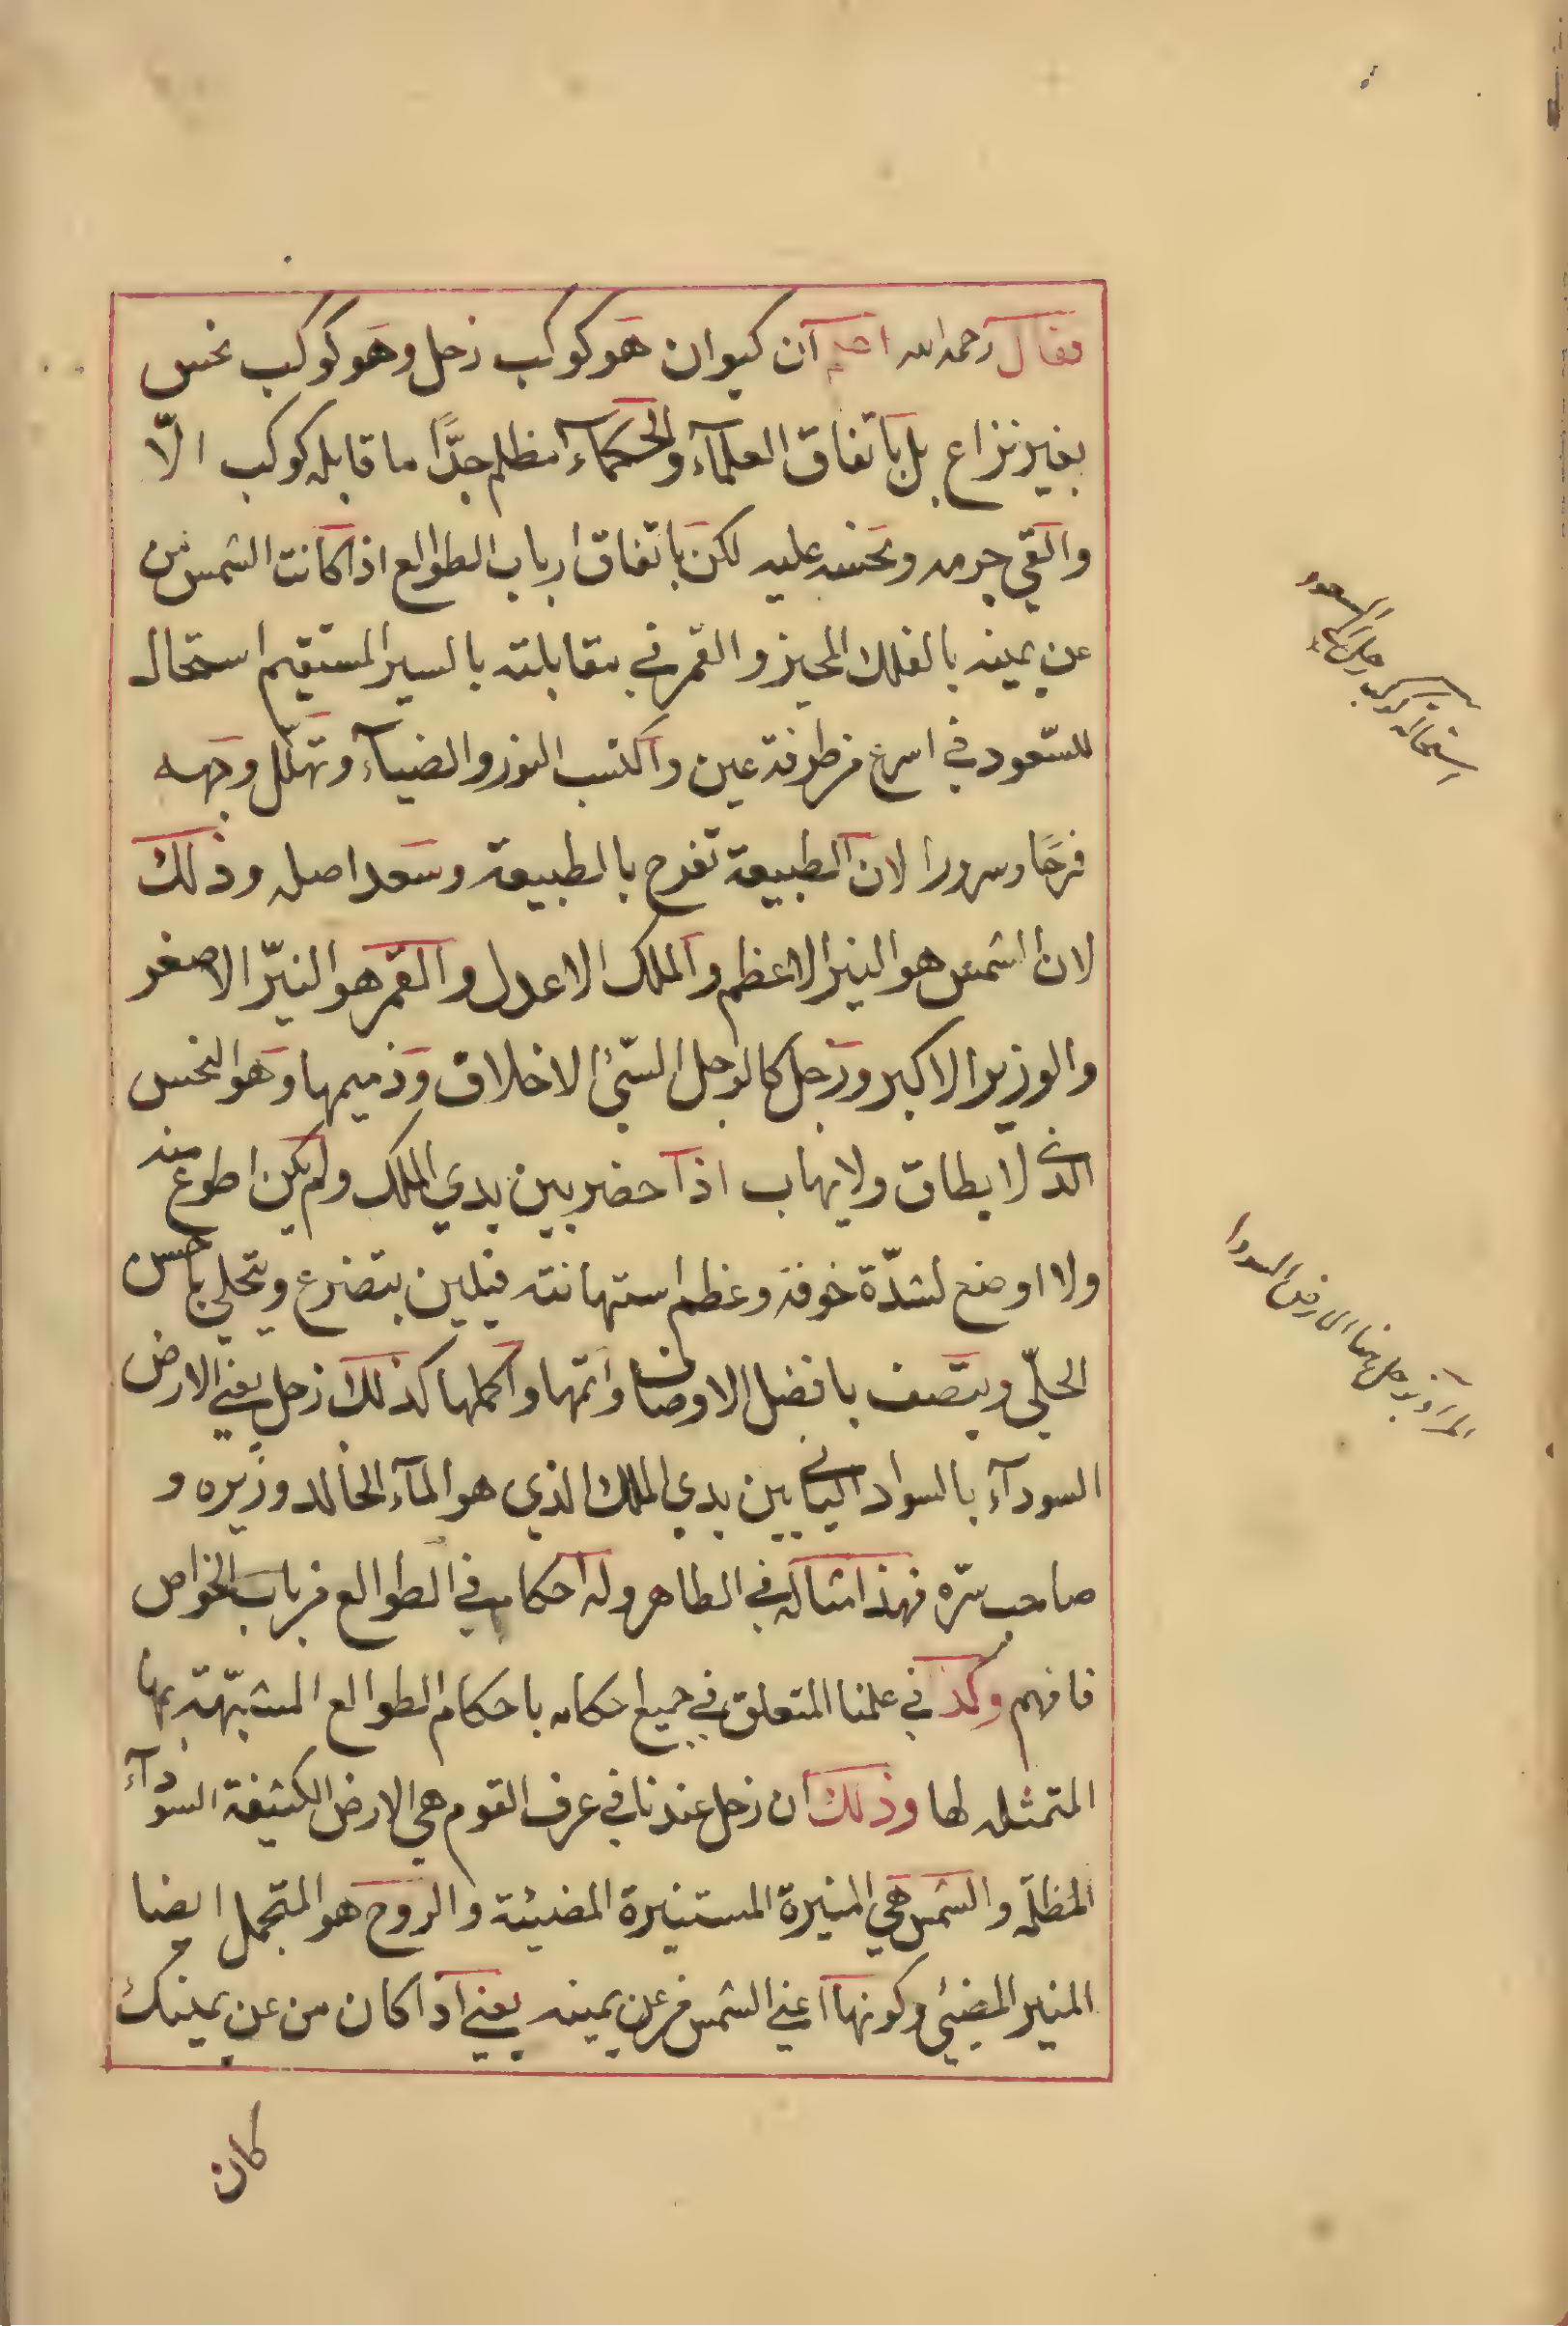 فقال رحمه الله اعلم ان كيوان هو كوكب زحل وهو كوكب نحس
بغير نزاع بل باتفاق العلمآء والحكمآء مظلم جدًّا ما قابله كوكب الّا
والقي جرمه ونحسه عليه لكن باتفاق ارباب الطوالع اذا كانت الشمس من
عن يمينه بالفلك المحيز والقمر في مقابلته بالسير المستقيم استحال
للسّعود في اسرع من طرفة عين واكتسب النور والضيآء وتهلّل وجهه
فرحًا وسرورا لان الطبيعة تفرح بالطبيعة وسعد اصله وذلك
لان الشمس هو النير الاعظم والملك الاعدل والقمر هو النيّر الاصغر
والوزير الاكبر وزحل كالرجل السّيئ الاخلاق وذميمها وهو النحس
الذي لا يطاق ولا يهاب اذا حضر بين يدي الملك ولم يكن اطوع منه
ولا اوضع لشدّة خوفه وعظم استهانته فيلين بتضرع ويتحلي باحسن
الحلّي ويتصف بافضل الاوصاف واتمها واكملها كذلك زحل يعني الارض
السودآء بالسواد الثاني بين يدي الملك الذي هو المآء الخالد وزيره و
صاحب سرّه فهذا مثاله في الظاهر وله احكام في الطوالع من باب الخواص
فافهم وكذا في علمنا المتعلق في جميع احكامه باحكام الطوالع المشبّهة بها
المتمثله لها وذلك ان زحل عندنا في عرف القوم هي الارض الكثيفة السودآء
المظلمه والشمس هي المنيرة المستنيرة المضيئة والروح هو المتجمل ايضا
المنير المضيئي وكونها اعني الشمس من عن يمينه يعني اذا كان من عن يمينك
كان
استحالة كوكب زحل الي السعود
المراد بزحل هنا الارض السودا